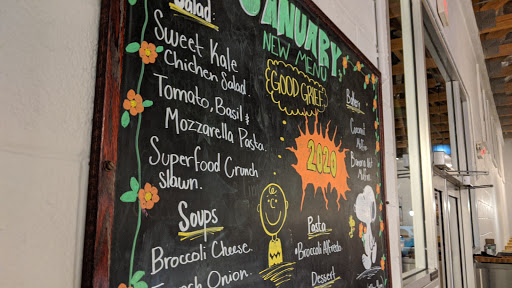 JANUARY
NEW MENU
GOOD GRIEF
2020
Salad
Sweet Kale
Chicken Salad
Tomato, Basil &
Mozzarella Pasta
Superfood Crunch
Slawn.
Soups
Broccoli Cheese.
French Onion
Pasta
Broccoli Alfredo
Dessert
Bakery
Coconut
Muffin
Banana Nut
Muffin